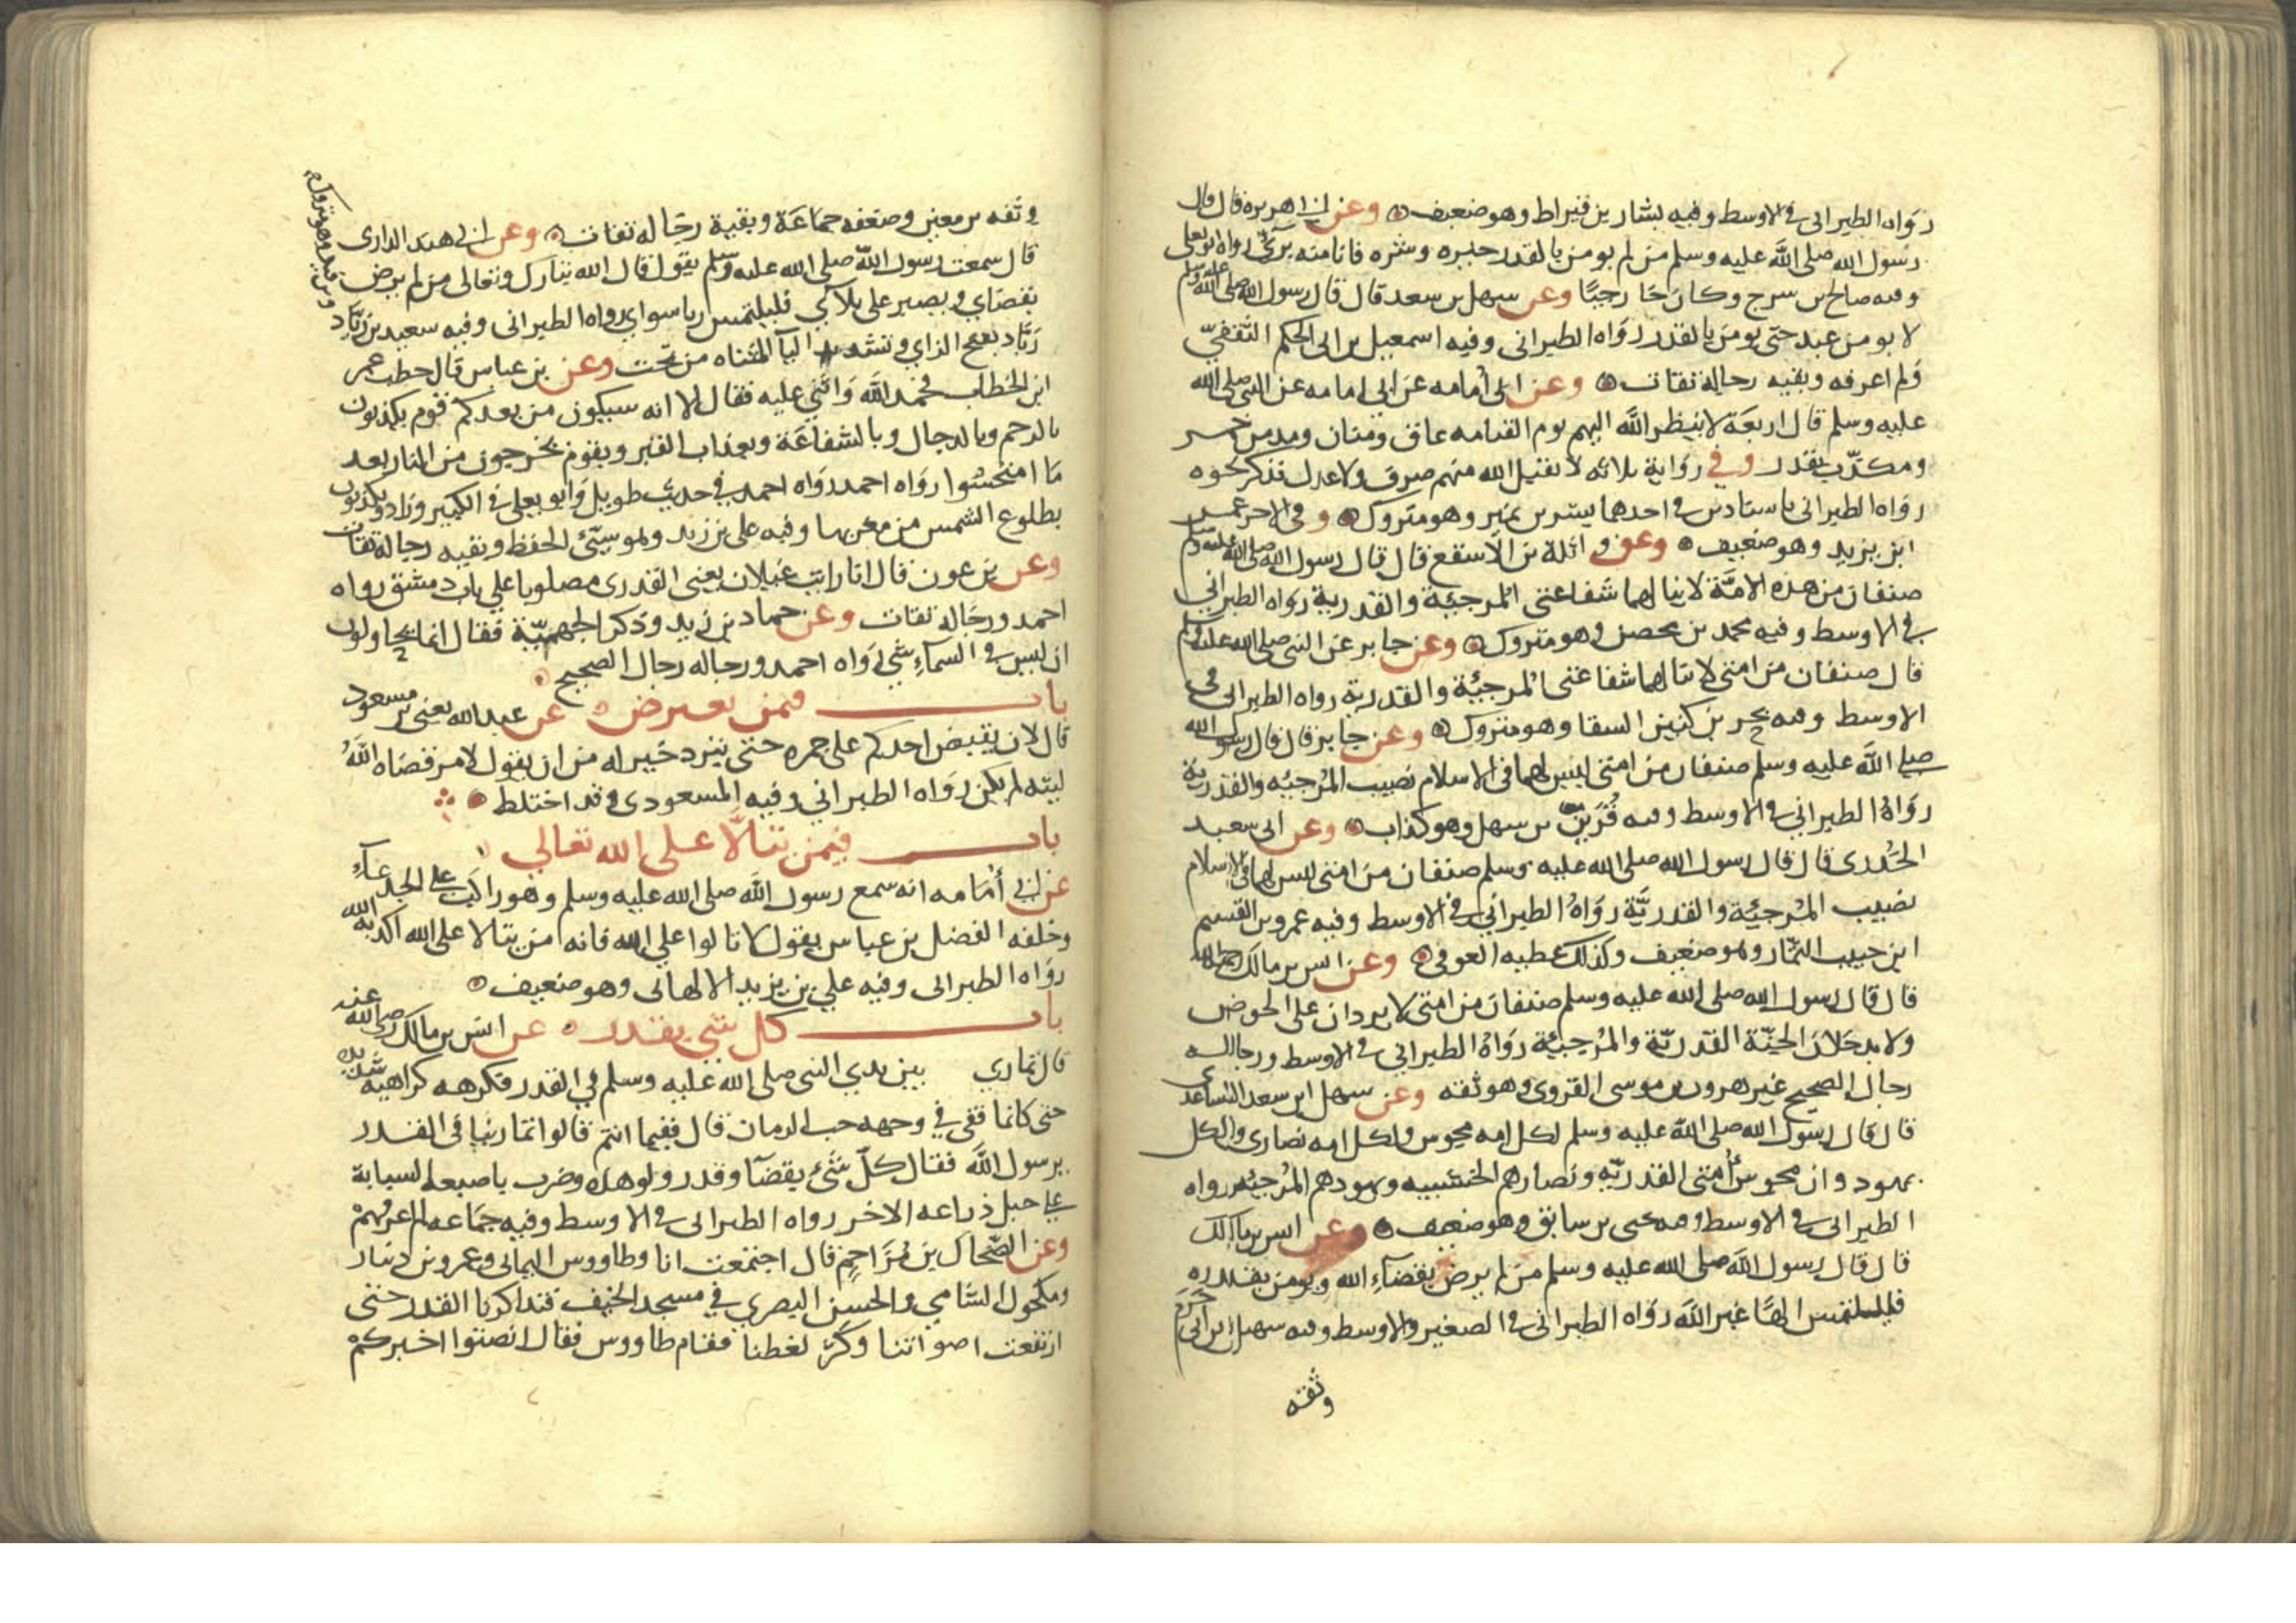 رواه الطبراني في الاوسط وفيه بشار بن قيراط وهو ضعيف وعن ابي هريرة قال قال
رسول الله صلى الله عليه وسلم من لم يومن بالقدر خيره وشره فانا منه بريء رواه ابو يعلى
وفيه صالح بن سرج وكان خارجيا وعن سهل بن سعد قال قال رسول الله صلى الله عليه وسلم
لا يومن عبد حتى يومن بالقدر رواه الطبراني وفيه اسمعيل بن ابي الحكم الثقفي
ولم اعرفه وبقيه رجاله ثقات وعن ابي أمامه عن ابي امامه عن النبي صلى الله
عليه وسلم قال اربعة لا ينظر الله اليهم يوم القيامه عاق ومنان ومدمن خمر
ومكذب بقدر وفي رواية ثلاثه لا يقبل الله منهم صرف ولا عدل فذكر نحوه
رواه الطبراني باسنادين في احدهما بشر بن نمير وهو متروك وفي الاخر عمر
ابن يزيد وهو ضعيف وعن واثلة بن الاسقع قال قال رسول الله صلى الله عليه وسلم
صنفان من هذه الامة لا ينالهما شفاعتي المرجئة والقدرية رواه الطبراني
في الاوسط وفيه محمد بن محصن وهو متروك وعن جابر عن النبي صلى الله عليه وسلم
قال صنفان من امتي لا تنالهما شفاعتي المرجئة والقدرية رواه الطبراني في
الاوسط وفيه بحر بن كنيز السقا وهو متروك وعن جابر قال قال رسول الله
صلى الله عليه وسلم صنفان من امتي ليس لهما في الاسلام نصيب المرجئه والقدرية
رواه الطبراني في الاوسط وفيه قرين بن سهل وهو كذاب وعن ابي سعيد
الخدري قال قال رسول الله صلى الله عليه وسلم صنفان من امتي ليس لهما في الاسلام
نصيب المرجئة والقدرية رواه الطبراني في الاوسط وفيه عمرو بن القسم
ابن حبيب التمار وهو ضعيف وكذلك عطيه العوفي وعن انس بن مالك
قال قال رسول الله صلى الله عليه وسلم صنفان من امتي لا يردان على الحوض
ولا يدخلان الجنة القدرية والمرجئة رواه الطبراني في الاوسط ورجاله
رجال الصحيح غير هرون بن موسى الفروي وهو ثقه وعن سهل ابن سعد الساعدي
قال قال رسول الله صلى الله عليه وسلم لكل امه مجوس ولكل امه نصارى ولكل
يهود وان مجوس أمتي القدريه ونصارهم الخشبيه ويهودهم المرجئه رواه
الطبراني في الاوسط وفيه يحيى بن سابق وهو ضعيف وعن انس بن مالك
قال قال رسول الله صلى الله عليه وسلم من لم يرض بقضاء الله ويومن بقدره
فليلتمس الها غير الله رواه الطبراني في الصغير والاوسط وفيه سهيل بن ابي حزم
وثقه
وثقه بن معين وضعفه جماعة وبقية رجاله ثقات وعن ابي هند الداري
قال سمعت رسول الله صلى الله عليه وسلم يقول قال الله تبارك وتعالى من لم يرض
بقضاي ويصبر على بلاءي فليلتمس ربا سواي رواه الطبراني وفيه سعيد بن زياد
زياد بفتح الزاي وتشديد اليا المثناه من تحت وعن بن عباس قال خطب عمر
ابن الخطاب فحمد الله واثنى عليه فقال الا انه سيكون من بعدكم قوم يكذبون
بالرجم وبالدجال وبالشفاعة وبعذاب القبر وبقوم يخرجون من النار بعد
ما امتحشوا رواه احمد رواه احمد في حديث طويل وابو يعلى في الكبير وزاد ويكذبون
بطلوع الشمس من مغربها وفيه علي بن زيد وهو سيئ الحفظ وبقيه رجاله ثقات
وعن بن عون قال انا رايت غيلان يعني القدري مصلوبا على باب دمشق رواه
احمد ورجاله ثقات وعن حماد بن زيد وذكر الجهمية فقال انما يحاولون
ان ليس في السماء شي رواه احمد ورجاله رجال الصحيح
باب فمن يعترض عن عبد الله يعني بن مسعود
قال لان يقبض احدكم على جمره حتى يبرد خير له من ان يقول لامر قضاه الله
ليته لم يكن رواه الطبراني وفيه المسعودي وقد اختلط
باب فيمن يتالا على الله تعالى
عن ابي أمامه انه سمع رسول الله صلى الله عليه وسلم وهو راكب على الجدعاء
وخلفه الفضل بن عباس يقول لا تالوا على الله فانه من يتالا على الله اكذبه الله
رواه الطبراني وفيه علي بن يزيد الالهاني وهو ضعيف
باب كل شي بقدر عن انس بن مالك رضي الله عنه
قال تماري بين يدي النبي صلى الله عليه وسلم في القدر فكرهه كراهية شديده
حتى كانما فقي في وجهه حب الرمان قال ففيما انتم قالوا تمارينا في القدر
يرسول الله فقال كل شيء بقضآ وقدر ولو هذه وضرب باصبعه السبابة
على حبل ذراعه الاخر رواه الطبراني في الاوسط وفيه جماعه لم اعرفهم
وعن الضحاك بن مزاحم قال اجتمعت انا وطاووس اليماني وعمرو بن دينار
ومكحول الشامي والحسن البصري في مسجد الخيف فتذاكرنا القدر حتى
ارتفعت اصواتنا وكثر لغطنا فقام طاووس فقال انصتوا اخبركم